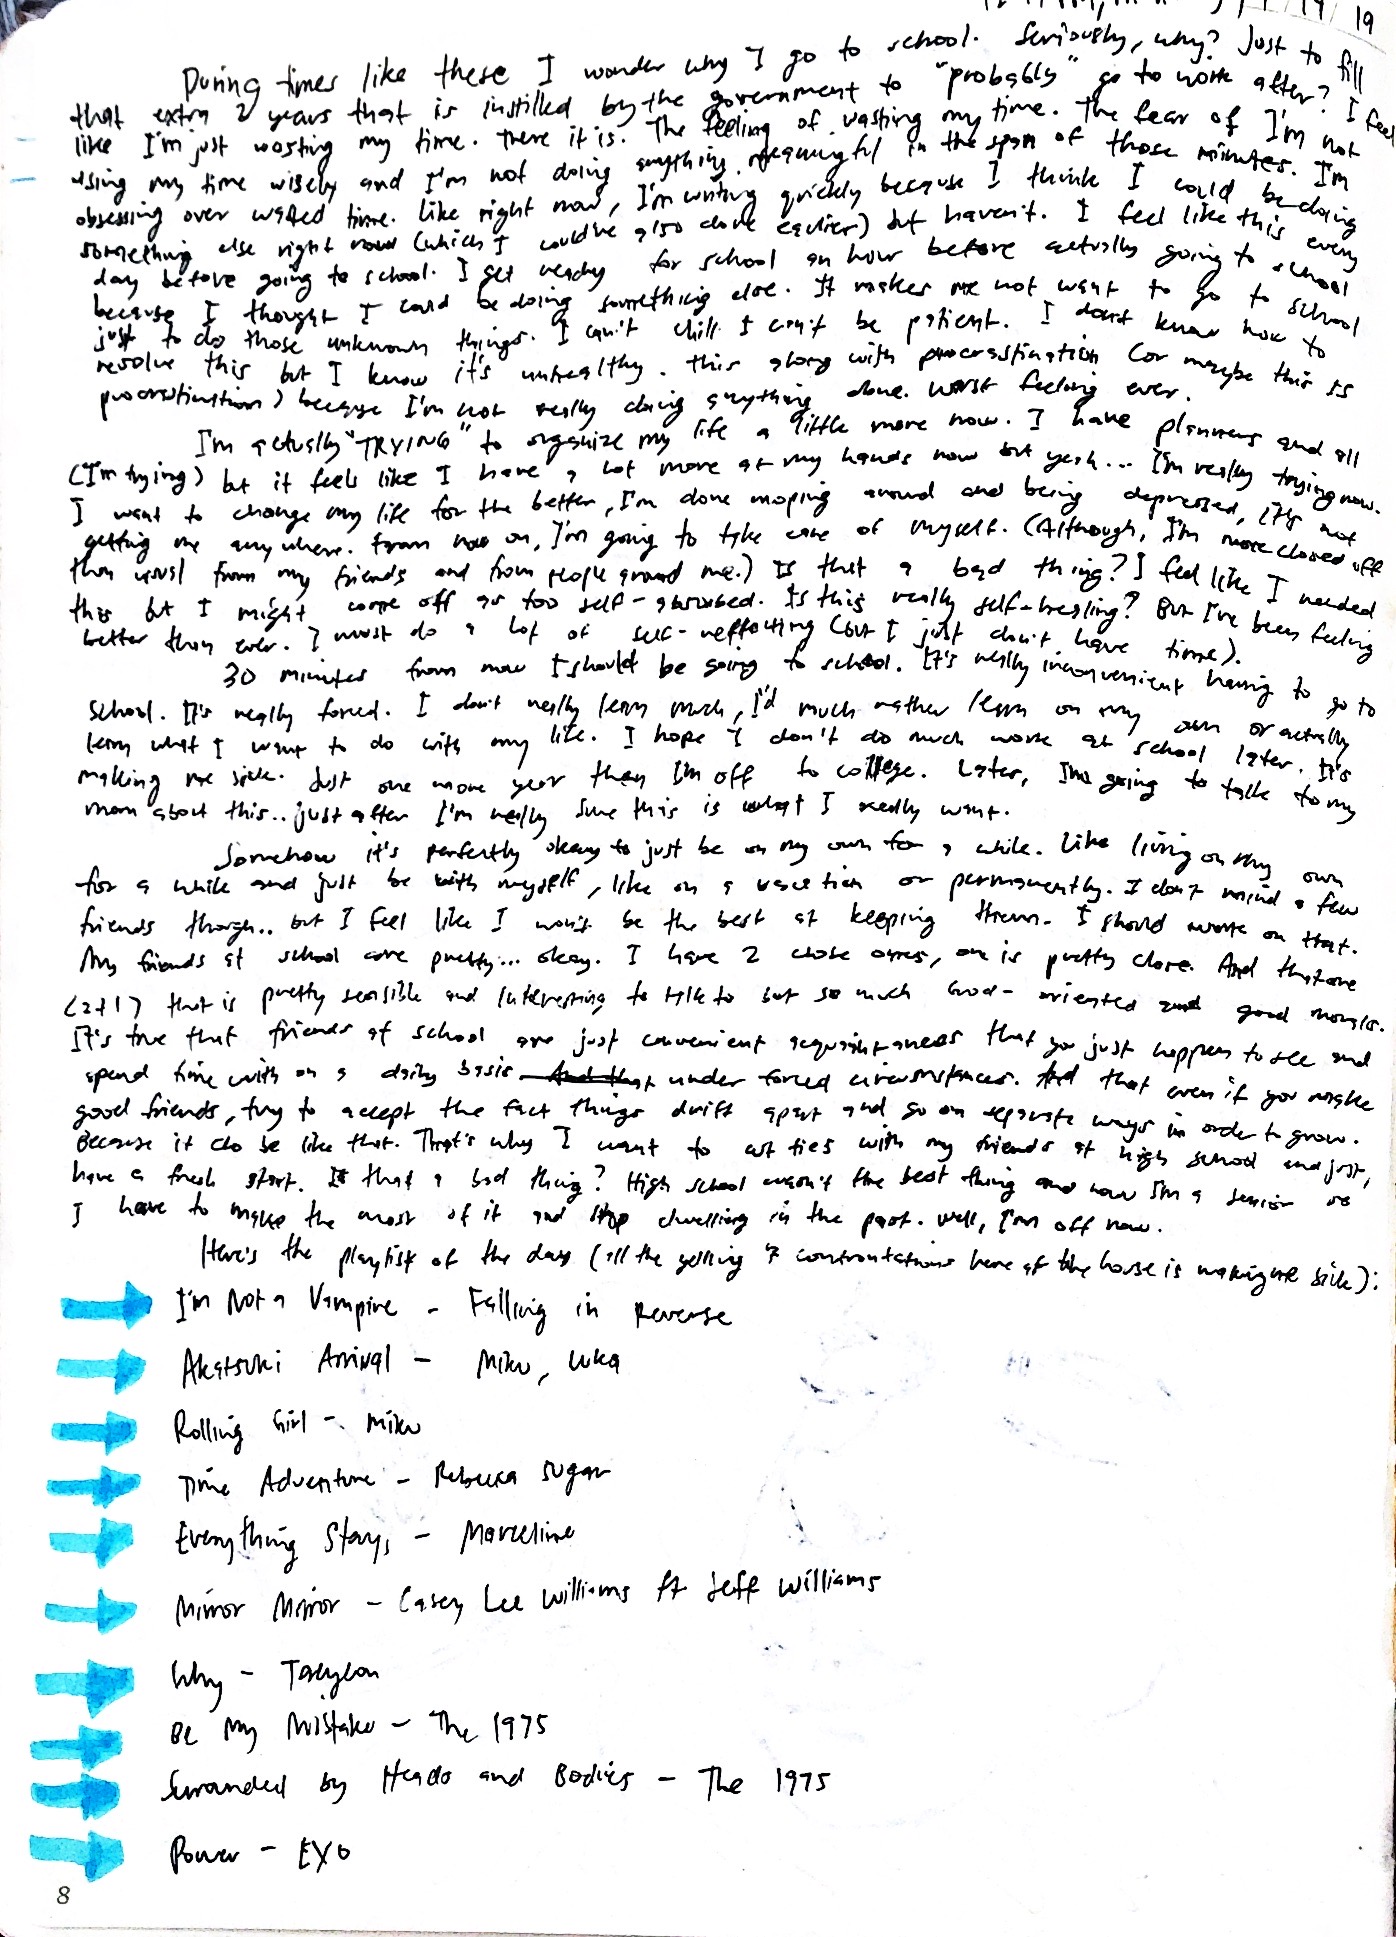 19
During times like these I wonder why I go to school. Seriously, why? Just to fill
that extra 2 years that is instilled by the government to "probably" go to work after? I feel
like I'm just wasting my time. There it is. The feeling of wasting my time. The fear of I'm not
using my time wisely and I'm not doing anything meaningful in the span of those minutes. I'm
obsessing over wasted time. Like right now, I'm writing quickly because I think I could be doing
something else right now (which I could've also done earlier) but haven't. I feel like this every
day before going to school. I get ready for school an hour before actually going to school
because I thought I could be doing something else. It makes me not want to go to school
just to do those unknown things. I can't chill I can't be patient. I don't know how to
resolve this but I know it's unhealthy. This along with procrastination (or maybe this is
procrastination) because I'm not really doing anything done. Worst feeling ever.
I'm actually "TRYING" to organize my life a little more now. I have planners and all
(I'm trying) but it feels like I have a lot more at my hands now but yeah... I'm really trying now.
I want to change my life for the better, I'm done moping around and being depressed, it's not
getting me anywhere. From now on, I'm going to take care of myself. (Although, I'm more closed off
than usual from my friends and from people around me.) Is that a bad thing? I feel like I needed
this but I might come off as too self-absorbed. Is this really self-healing? But I've been feeling
better than ever. I must do a lot of self-reflecting (but I just don't have time).
30 minutes from now I should be going to school. It's really inconvenient having to go to
school. It's really forced. I don't really learn much, I'd much rather learn on my own or actually
learn what I want to do with my life. I hope I don't do much work at school later. It's
making me sick. Just one more year then I'm off to college. Later, I'm going to talk to my
mom about this.. just after I'm really sure this is what I really want.
Somehow it's perfectly okay to just be on my own for a while. Like living on my own
for a while and just be with myself, like on a vacation or permanently. I don't mind a few
friends though.. but I feel like I won't be the best at keeping them. I should work on that.
My friends at school are pretty... okay. I have 2 close ones, one is pretty close. And that one
(2+1) that is pretty sensible and interesting to talk to but so much God-oriented and good morals.
It's true that friends at school are just convenient acquaintances that you just happen to see and
spend time with on a daily basis under forced circumstances. And that even if you make
good friends, try to accept the fact things drift apart and go on separate ways in order to grow.
Because it do be like that. That's why I want to cut ties with my friends at high school and just,
have a fresh start. Is that a bad thing? High school wasn't the best thing and now I'm a senior so
I have to make the most of it and stop dwelling in the past. Well, I'm off now.
Here's the playlist of the day (all the yelling & confrontations here at the house is making me sick):
I'm Not a Vampire - Falling in Reverse
Akatsuki Arrival - Miku, Luka
Rolling Girl - Miku
Time Adventure - Rebecca Sugar
Everything Stays - Marceline
Mirror Mirror - Casey Lee Williams ft Jeff Williams
Why - Taeyeon
Be My Mistake - The 1975
Surrounded by Heads and Bodies - The 1975
Power - EXO
8